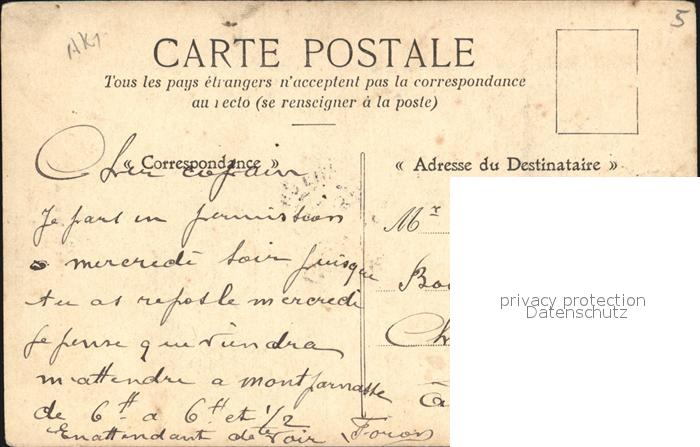 AK1
5
CARTE POSTALE
Tous les pays étrangers n'acceptent pas la correspondance
au recto (se renseigner à la poste)
« Correspondance »
« Adresse du Destinataire »
Cher copain
Je part en permission
mercredi soir puisque
tu as repos le mercredi
je pense que viendra
m'attendre a montparnasse
de 6 H a 6 H et 1/2
En attendant de te voir
Mr
à
privacy protection
Datenschutz